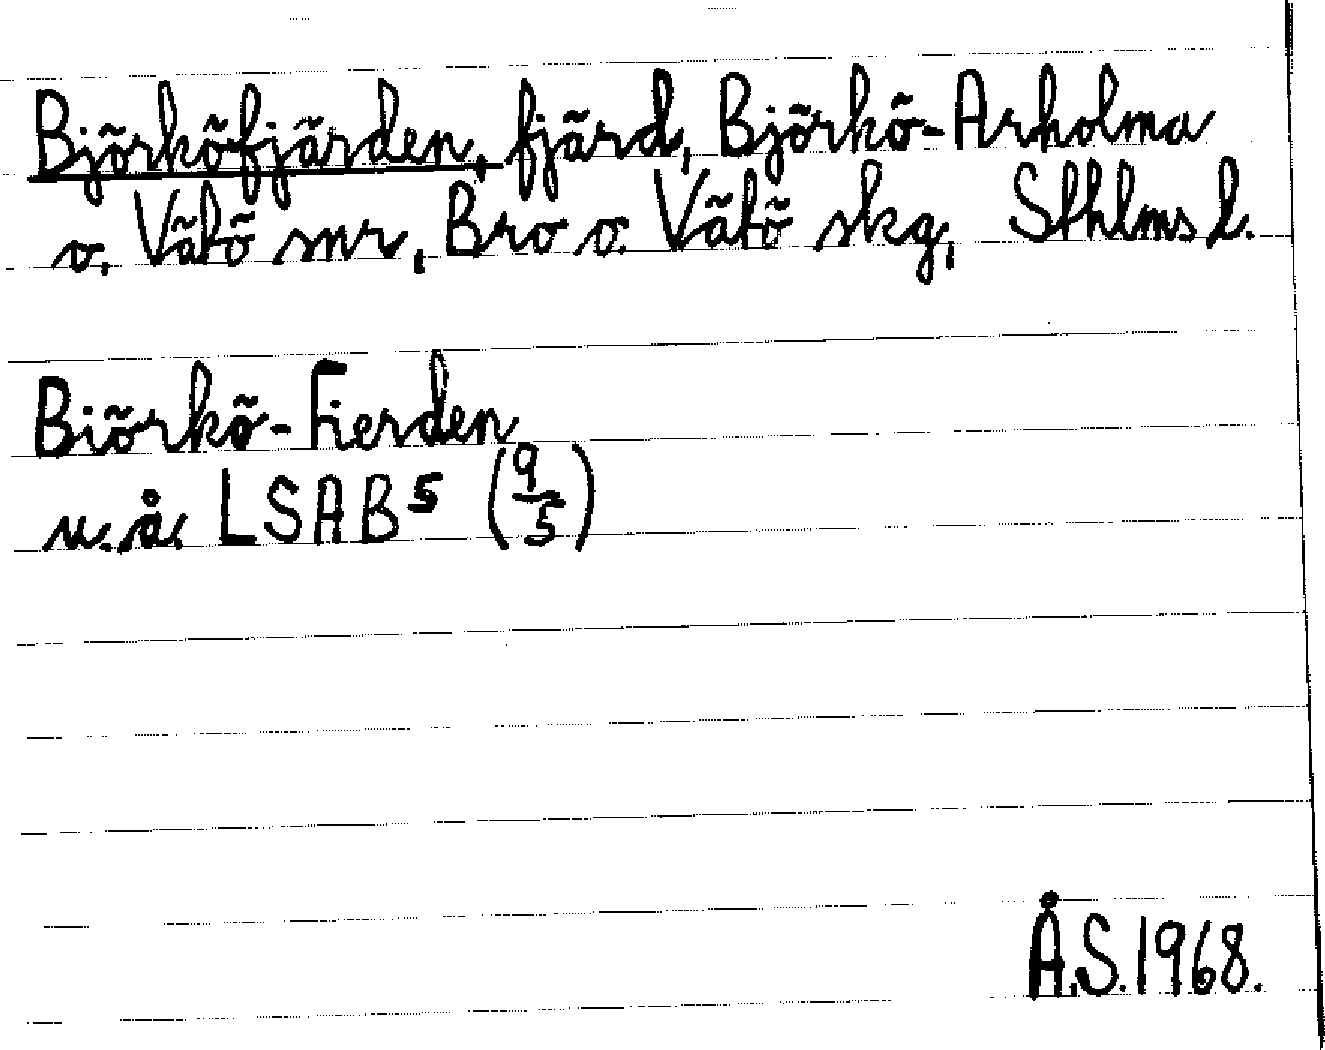 Björköfjärden, fjärd, Björkö-Arholma
o. Vätö snr, Bro o. Vätö skg, Sthlms l.
Biörkö-Fierden
u.å. LSAB⁵ (9/5)
Å.S. 1968.